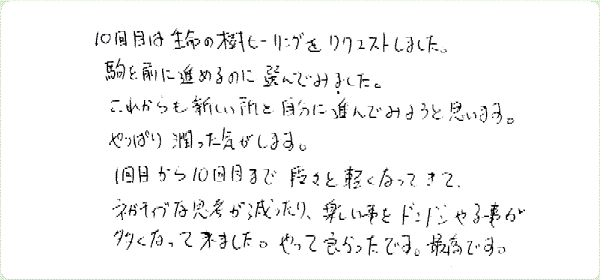 10回目は生命の樹ヒーリングをリクエストしました。
駒を前に進めるのに選んでみました。
これからも新しい所と自分に進んでみようと思います。
やっぱり潤った気がします。
1回目から10回目まで段々と軽くなってきて、
ネガティブな思考が減ったり、楽しい事をドンドンやる事が
多くなって来ました。やって良かったです。最高です。